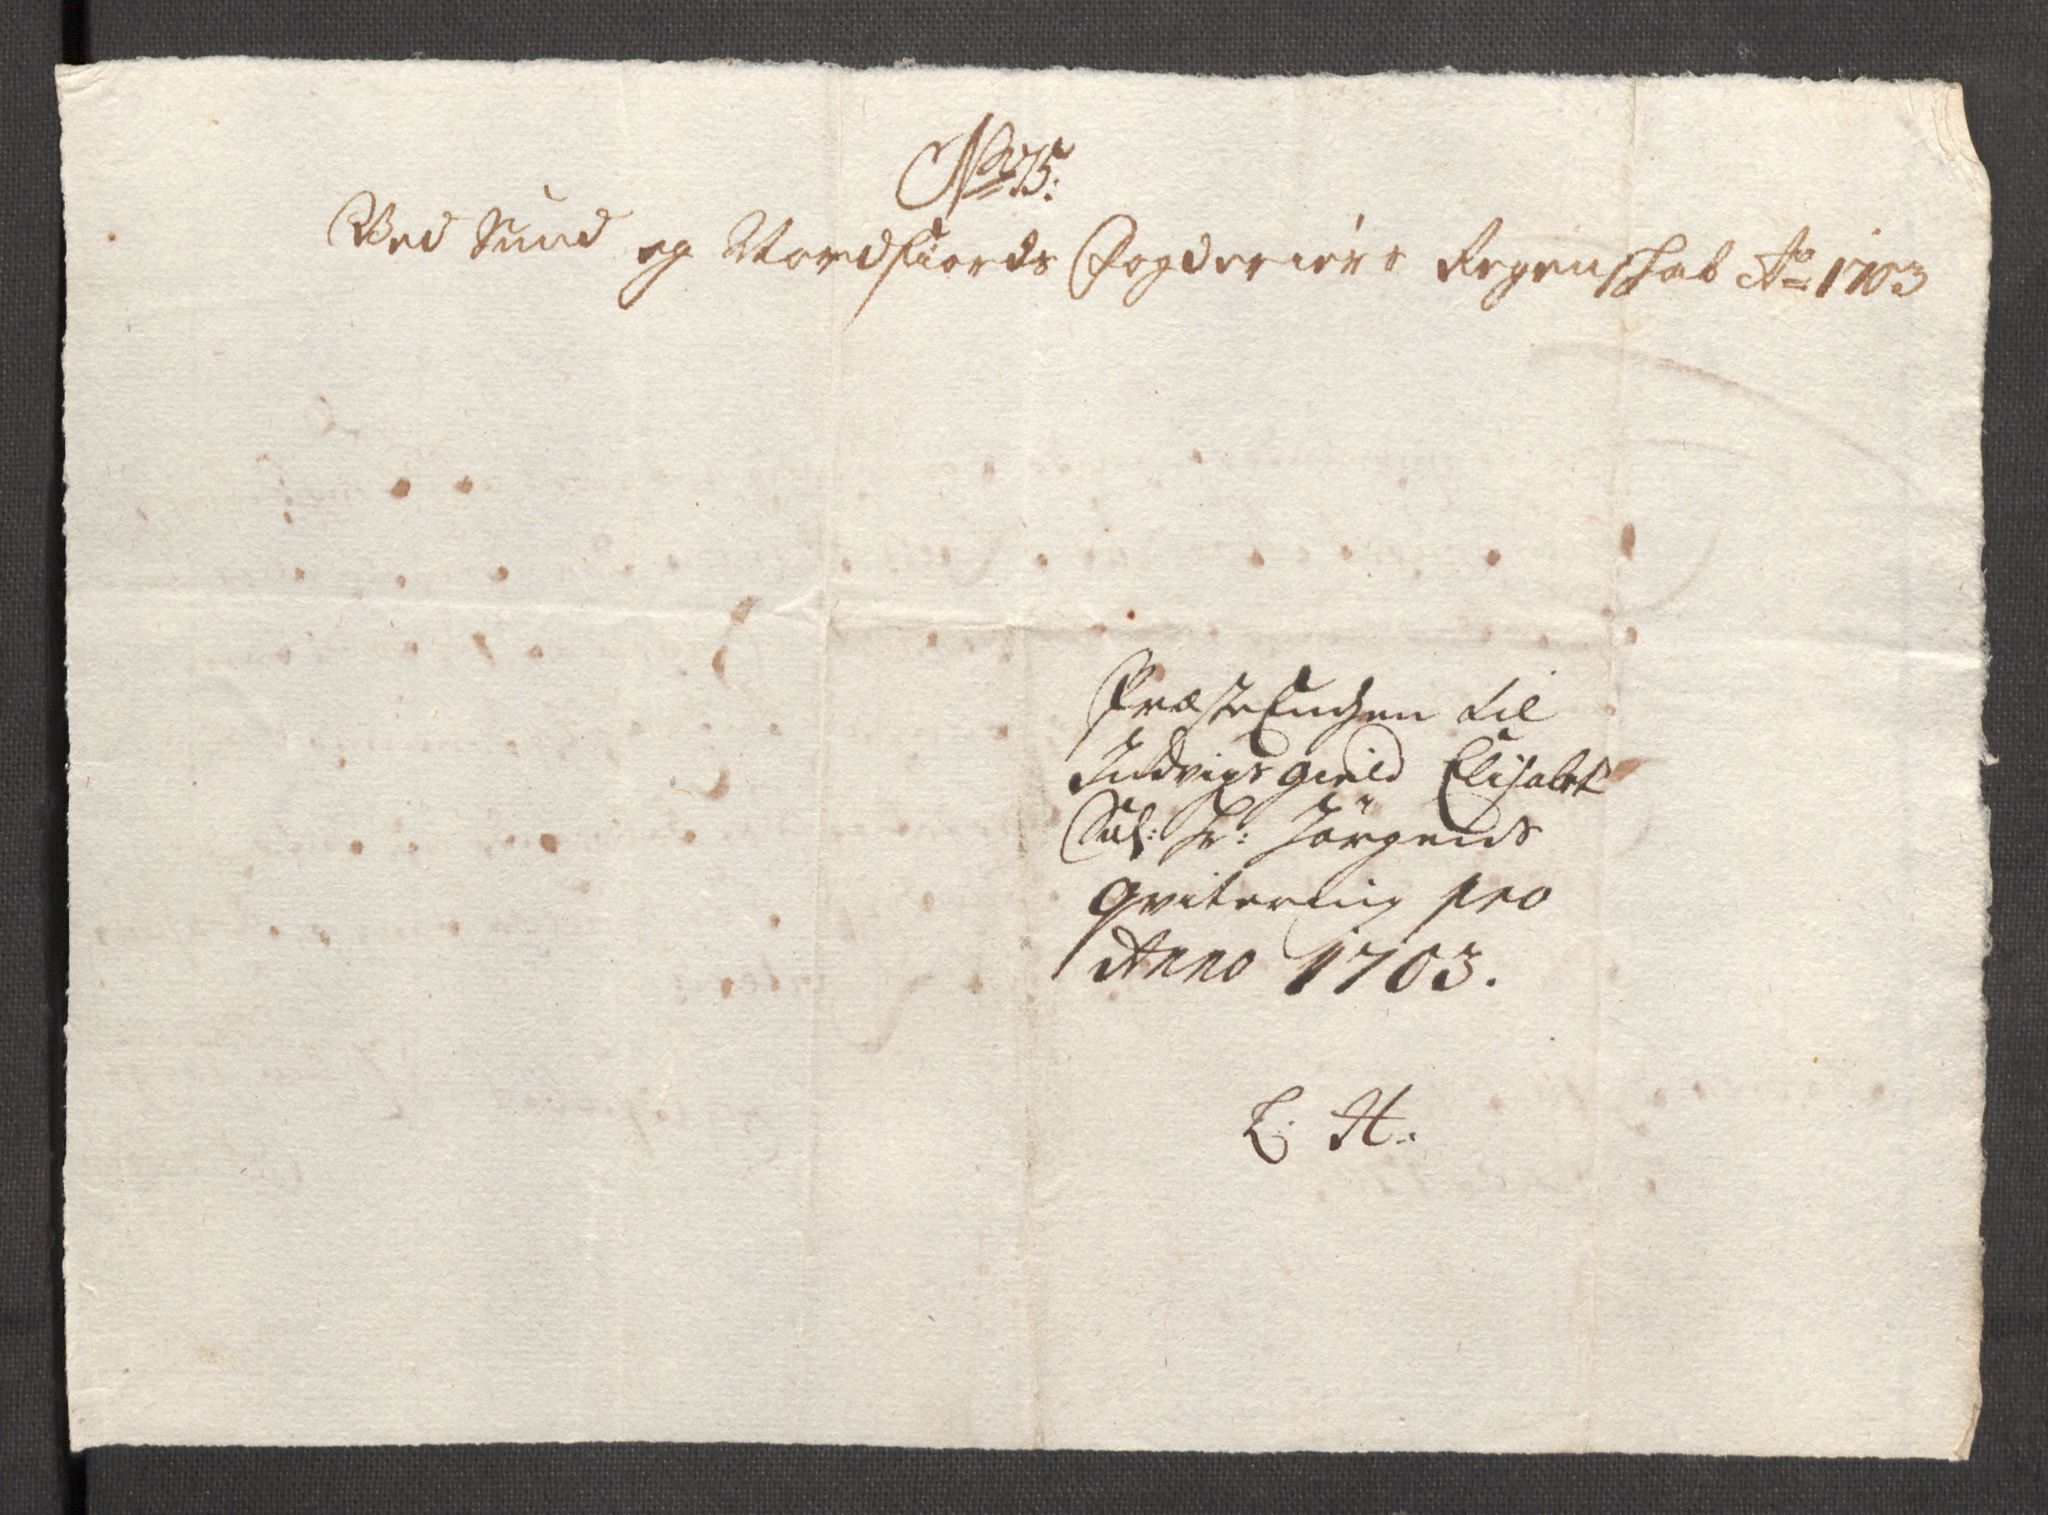 No 75:
Ved Sund og Nordfiords Fogderiers Regenskab Ao 1703
Præste Enchen til
Indvigs gield Elisabet
Sal: Hr: Jörgens
qvitering pro
Anno 1703.
L. H.